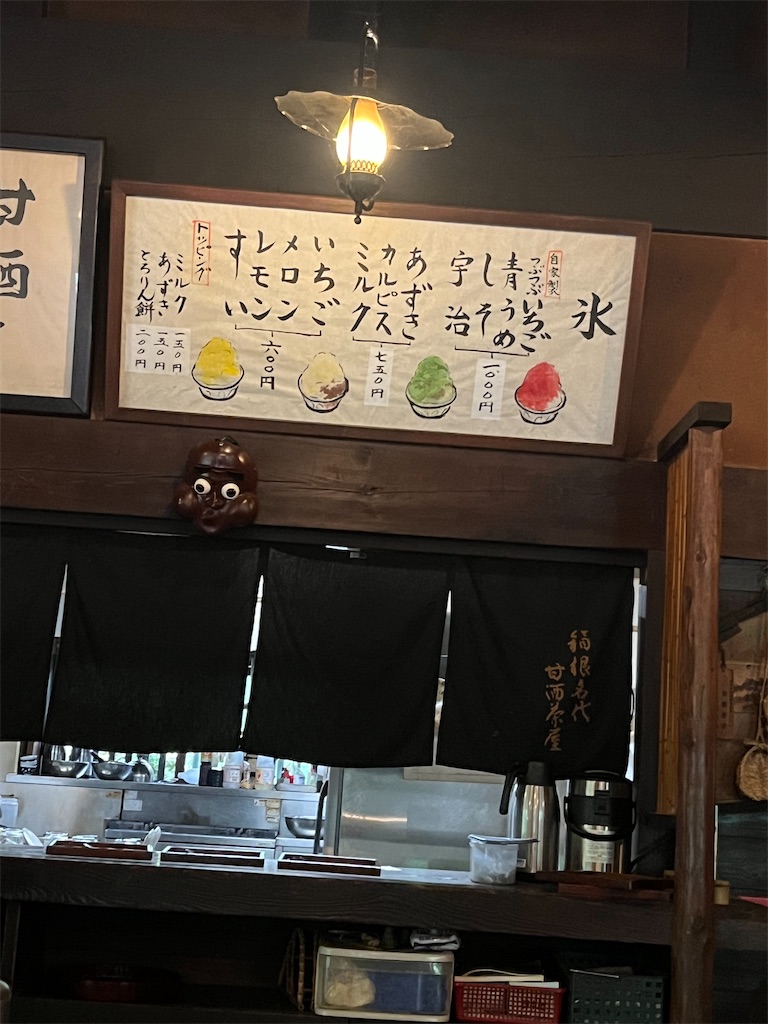 氷
自家製
つぶつぶいちご
青うめ
しそ
宇治
一〇〇〇円
あずき
カルピス
ミルク
七五〇円
いちご
メロン
レモン
すい
六〇〇円
トッピング
ミルク 一五〇円
あずき 一五〇円
とろりん餅 二〇〇円
甘酒
箱根名代
甘酒茶屋